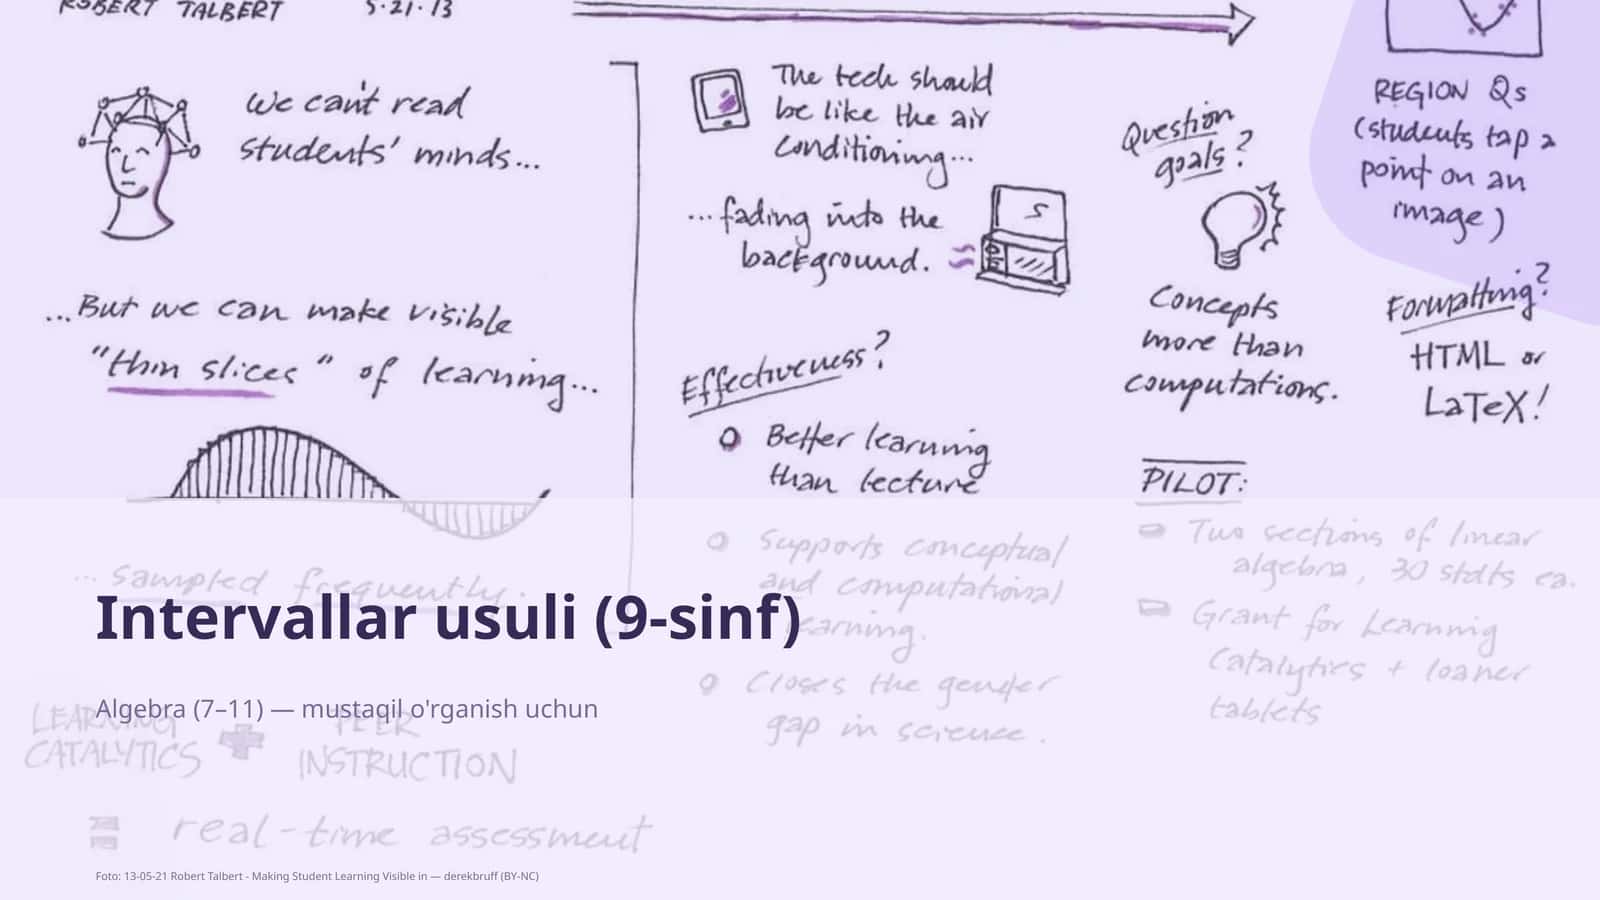 ROBERT TALBERT 5.21.13
We can't read
students' minds...
...But we can make visible
"thin slices" of learning...
... sampled frequently.
LEARNING
CATALYTICS
PEER
INSTRUCTION
real-time assessment
The tech should
be like the air
conditioning...
...fading into the
background.
Effectiveness?
Better learning
than lecture
Supports conceptual
and computational
learning.
Closes the gender
gap in science.
Question
goals?
Concepts
more than
computations.
PILOT:
Two sections of linear
algebra, 30 stdts ea.
Grant for Learning
Catalytics + loaner
tablets
REGION Qs
(students tap a
point on an
image)
Formatting?
HTML or
LaTeX!
Intervallar usuli (9-sinf)
Algebra (7–11) — mustaqil o'rganish uchun
Foto: 13-05-21 Robert Talbert - Making Student Learning Visible in — derekbruff (BY-NC)